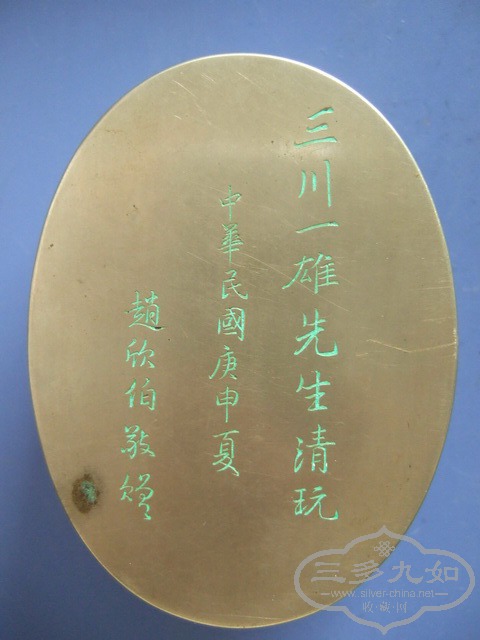 三川一雄先生清玩
中華民國庚申夏
趙欣伯敬贈
三多九如
www.silver-china.net
收藏网